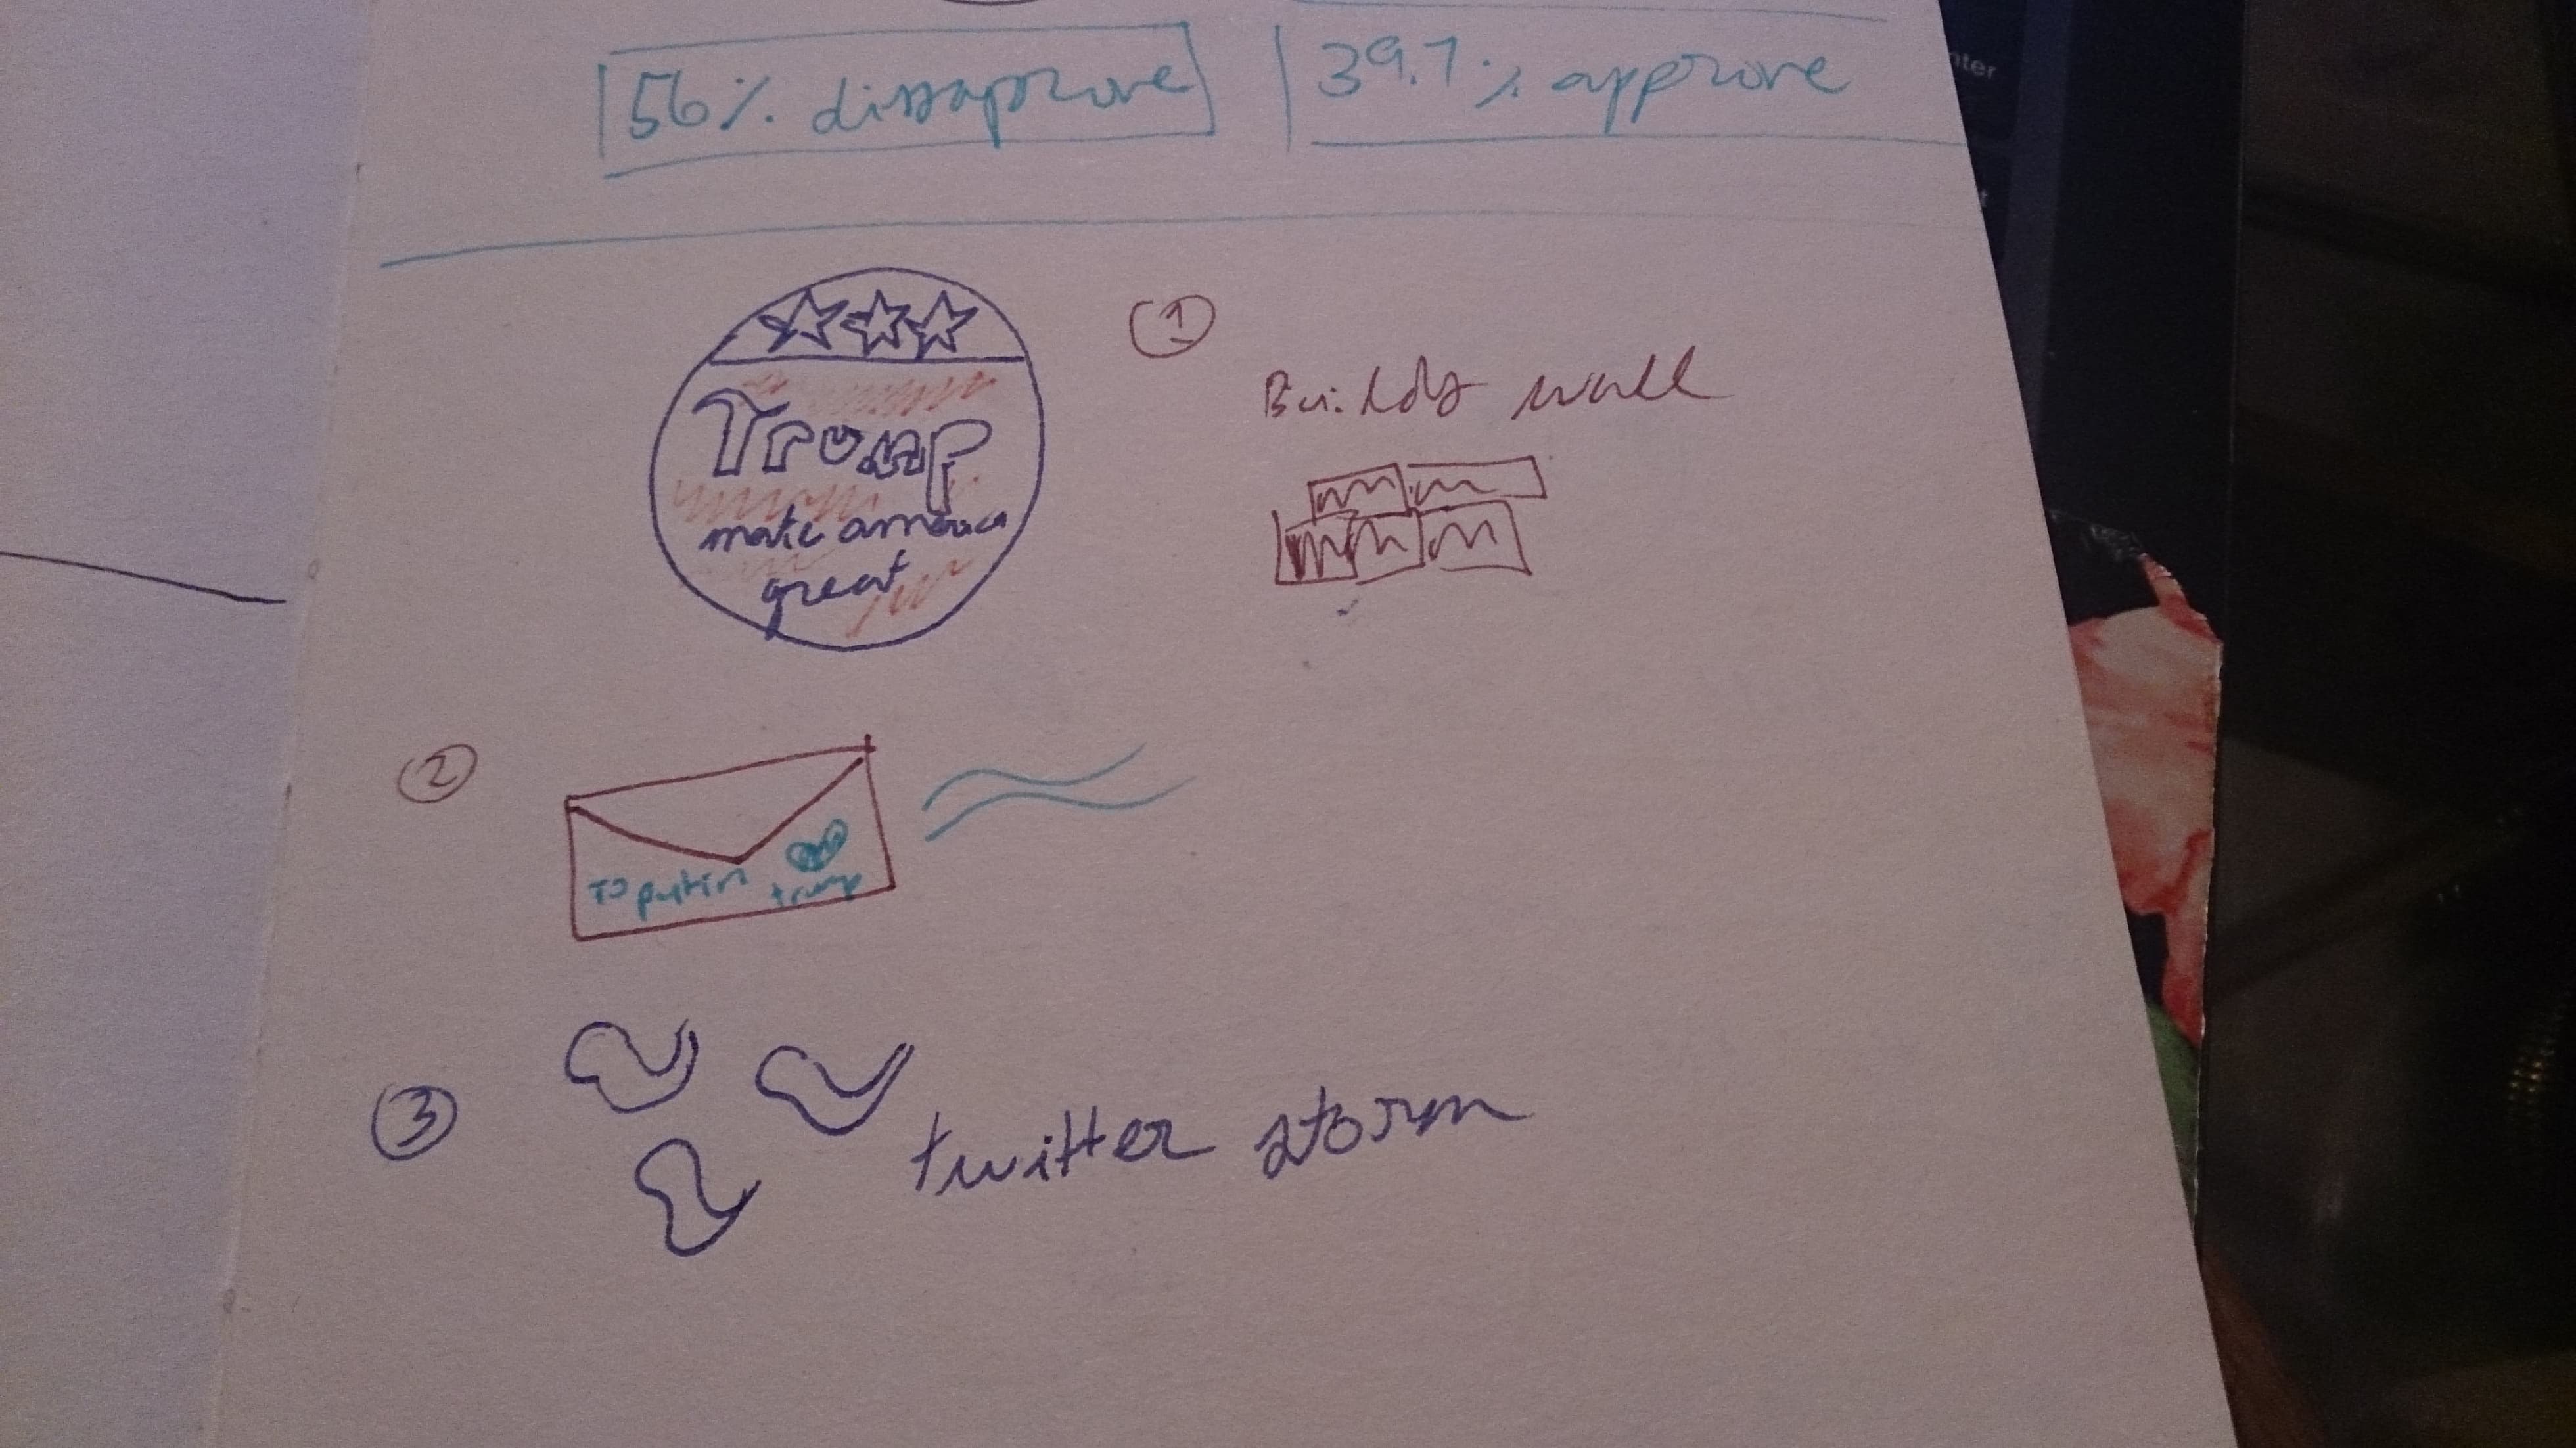 56% dissaprove
39.7% approve
Trump
make america
great
1
Builds wall
2
To putin
trump
3
twitter storm